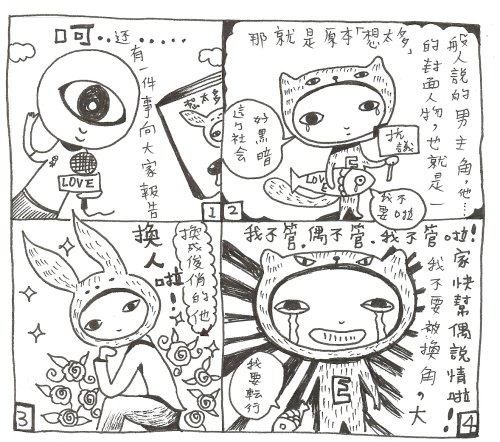 呵..還......
有一件事向大家報告
想太多
LOVE
1
那就是原本「想太多」
的封面人物,也就是一
般人說的男主角,他…
好黑暗
這个社會
抗議
E
LOVE
我不
要啦
2
換人啦!
換成俊俏的他
3
我不管.偶不管.我不管啦!
我不要被換角,大
家快幫偶說情啦!
我要転行
E
4